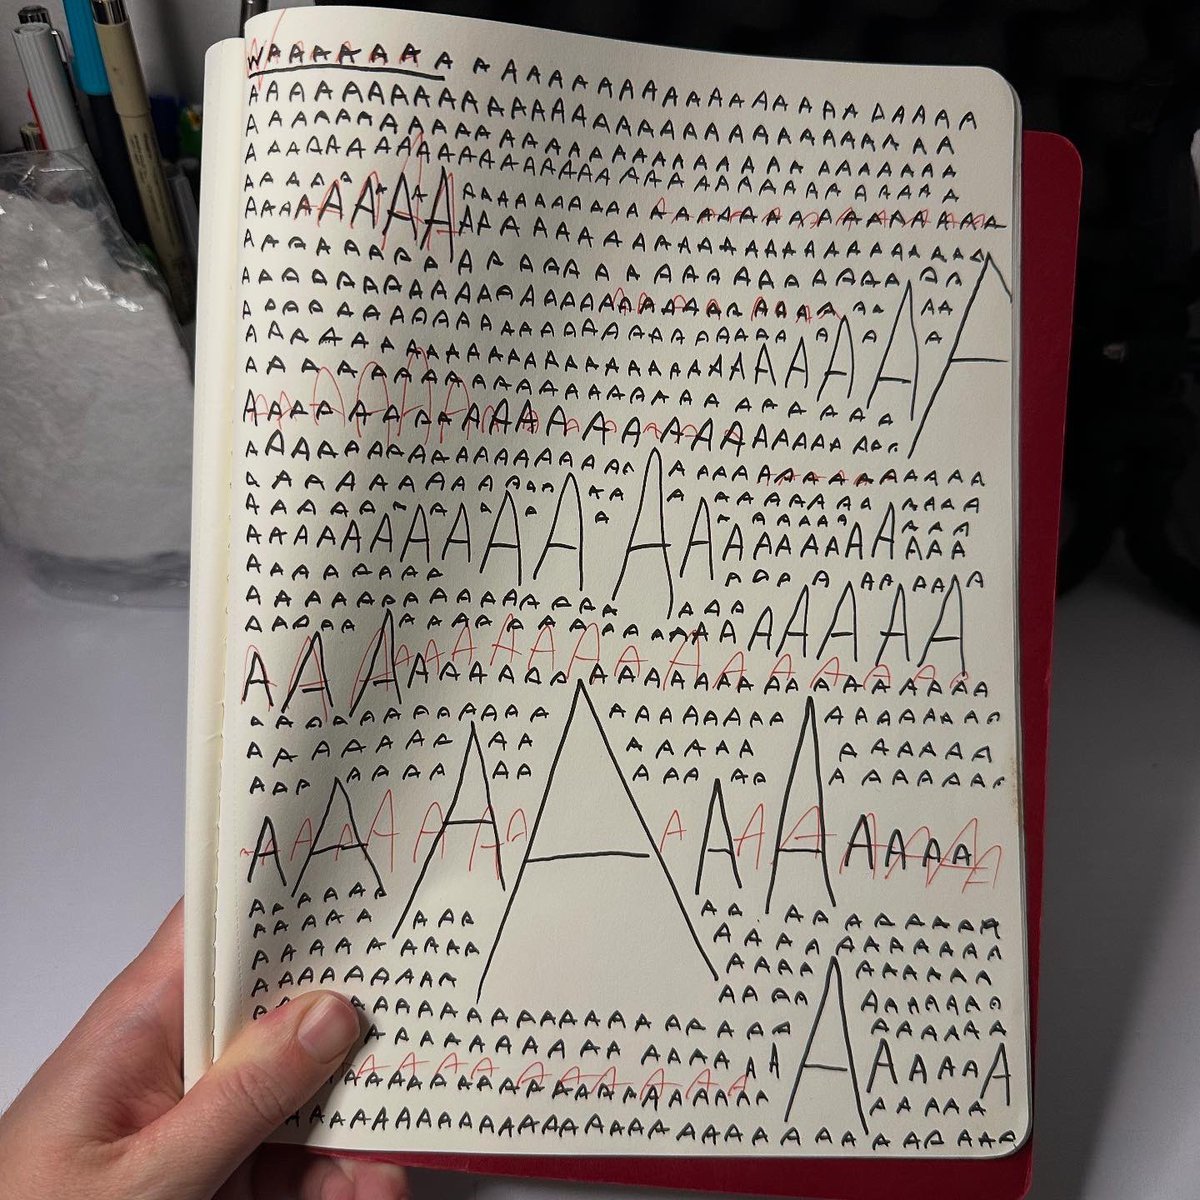 WAAAAAAA A AAAAAAAAAAAAAAAAAAAA
AAAAAAAAAAAAAAAAAAAAAAAAAAAAAA
AAAAAAAAAAAAAAAAAAAAAAAAAAAAA
AAAAAAAAAAAAAAAAAAAAAAAAAAAAA
AAAAAAAAAAAAAAAAAAAAAAAAAAAAA
AAAAAAAAAAAAAAAAAAAAAAAAAAAAA
AAAAAAAAAAAAAAAAAAAAAAAAAAA
AAAAAAAAAAAAAAAAAAAAAAAAAAA
AAAAAAAAAAAAAAAAAAAAAAAAAA
AAAAAAAAAAAAAAAAAAAAAAAAAA
AAAAAAAAAAAAAAAAAAAAAAAA
AAAAAAAAAAAAAAAAAAAAAAAA
AAAAAAAAAAAAAAAAAAAAAAAAAAA
AAAAAAAAAAAAAAAAAAAAAAAAA
AAAAAAAAAAAAAAAAAAAAAA
AAAAAAAAAAAAAAAAAAAAAA
AAAAAAAAAAAAAAAA
AAAAAAAAAAAAAAAAAAAAAAAA
AAAAAAAAAAAAAAAAAAAAAAA
AAAAAAAAAAAAAAAAAAAAAAAAA
AAAAAAAAAAAAAAAAAAAAAAAA
AAAAAAAAAAAAAAAAAAAAA
AAAAAAAAAAAAAAAAAAAA
AAAAAAAAAA
AAAAAAAAAAAAAAAAAA
AAAAAAAAAAAAAAAAAAA
AAAAAAAAAAAAAAAAAAA
AAAAAAAAAAAAAAAAAAA
AAAAAAAAAAAAAAAAAAAAAA
AAAAAAAAAAAAAAAAAAAAA
AAAAAAAAAAAAAAAAAAAAA
AAAAAAAAAAAAAAAAAAAAAAAAAAAA